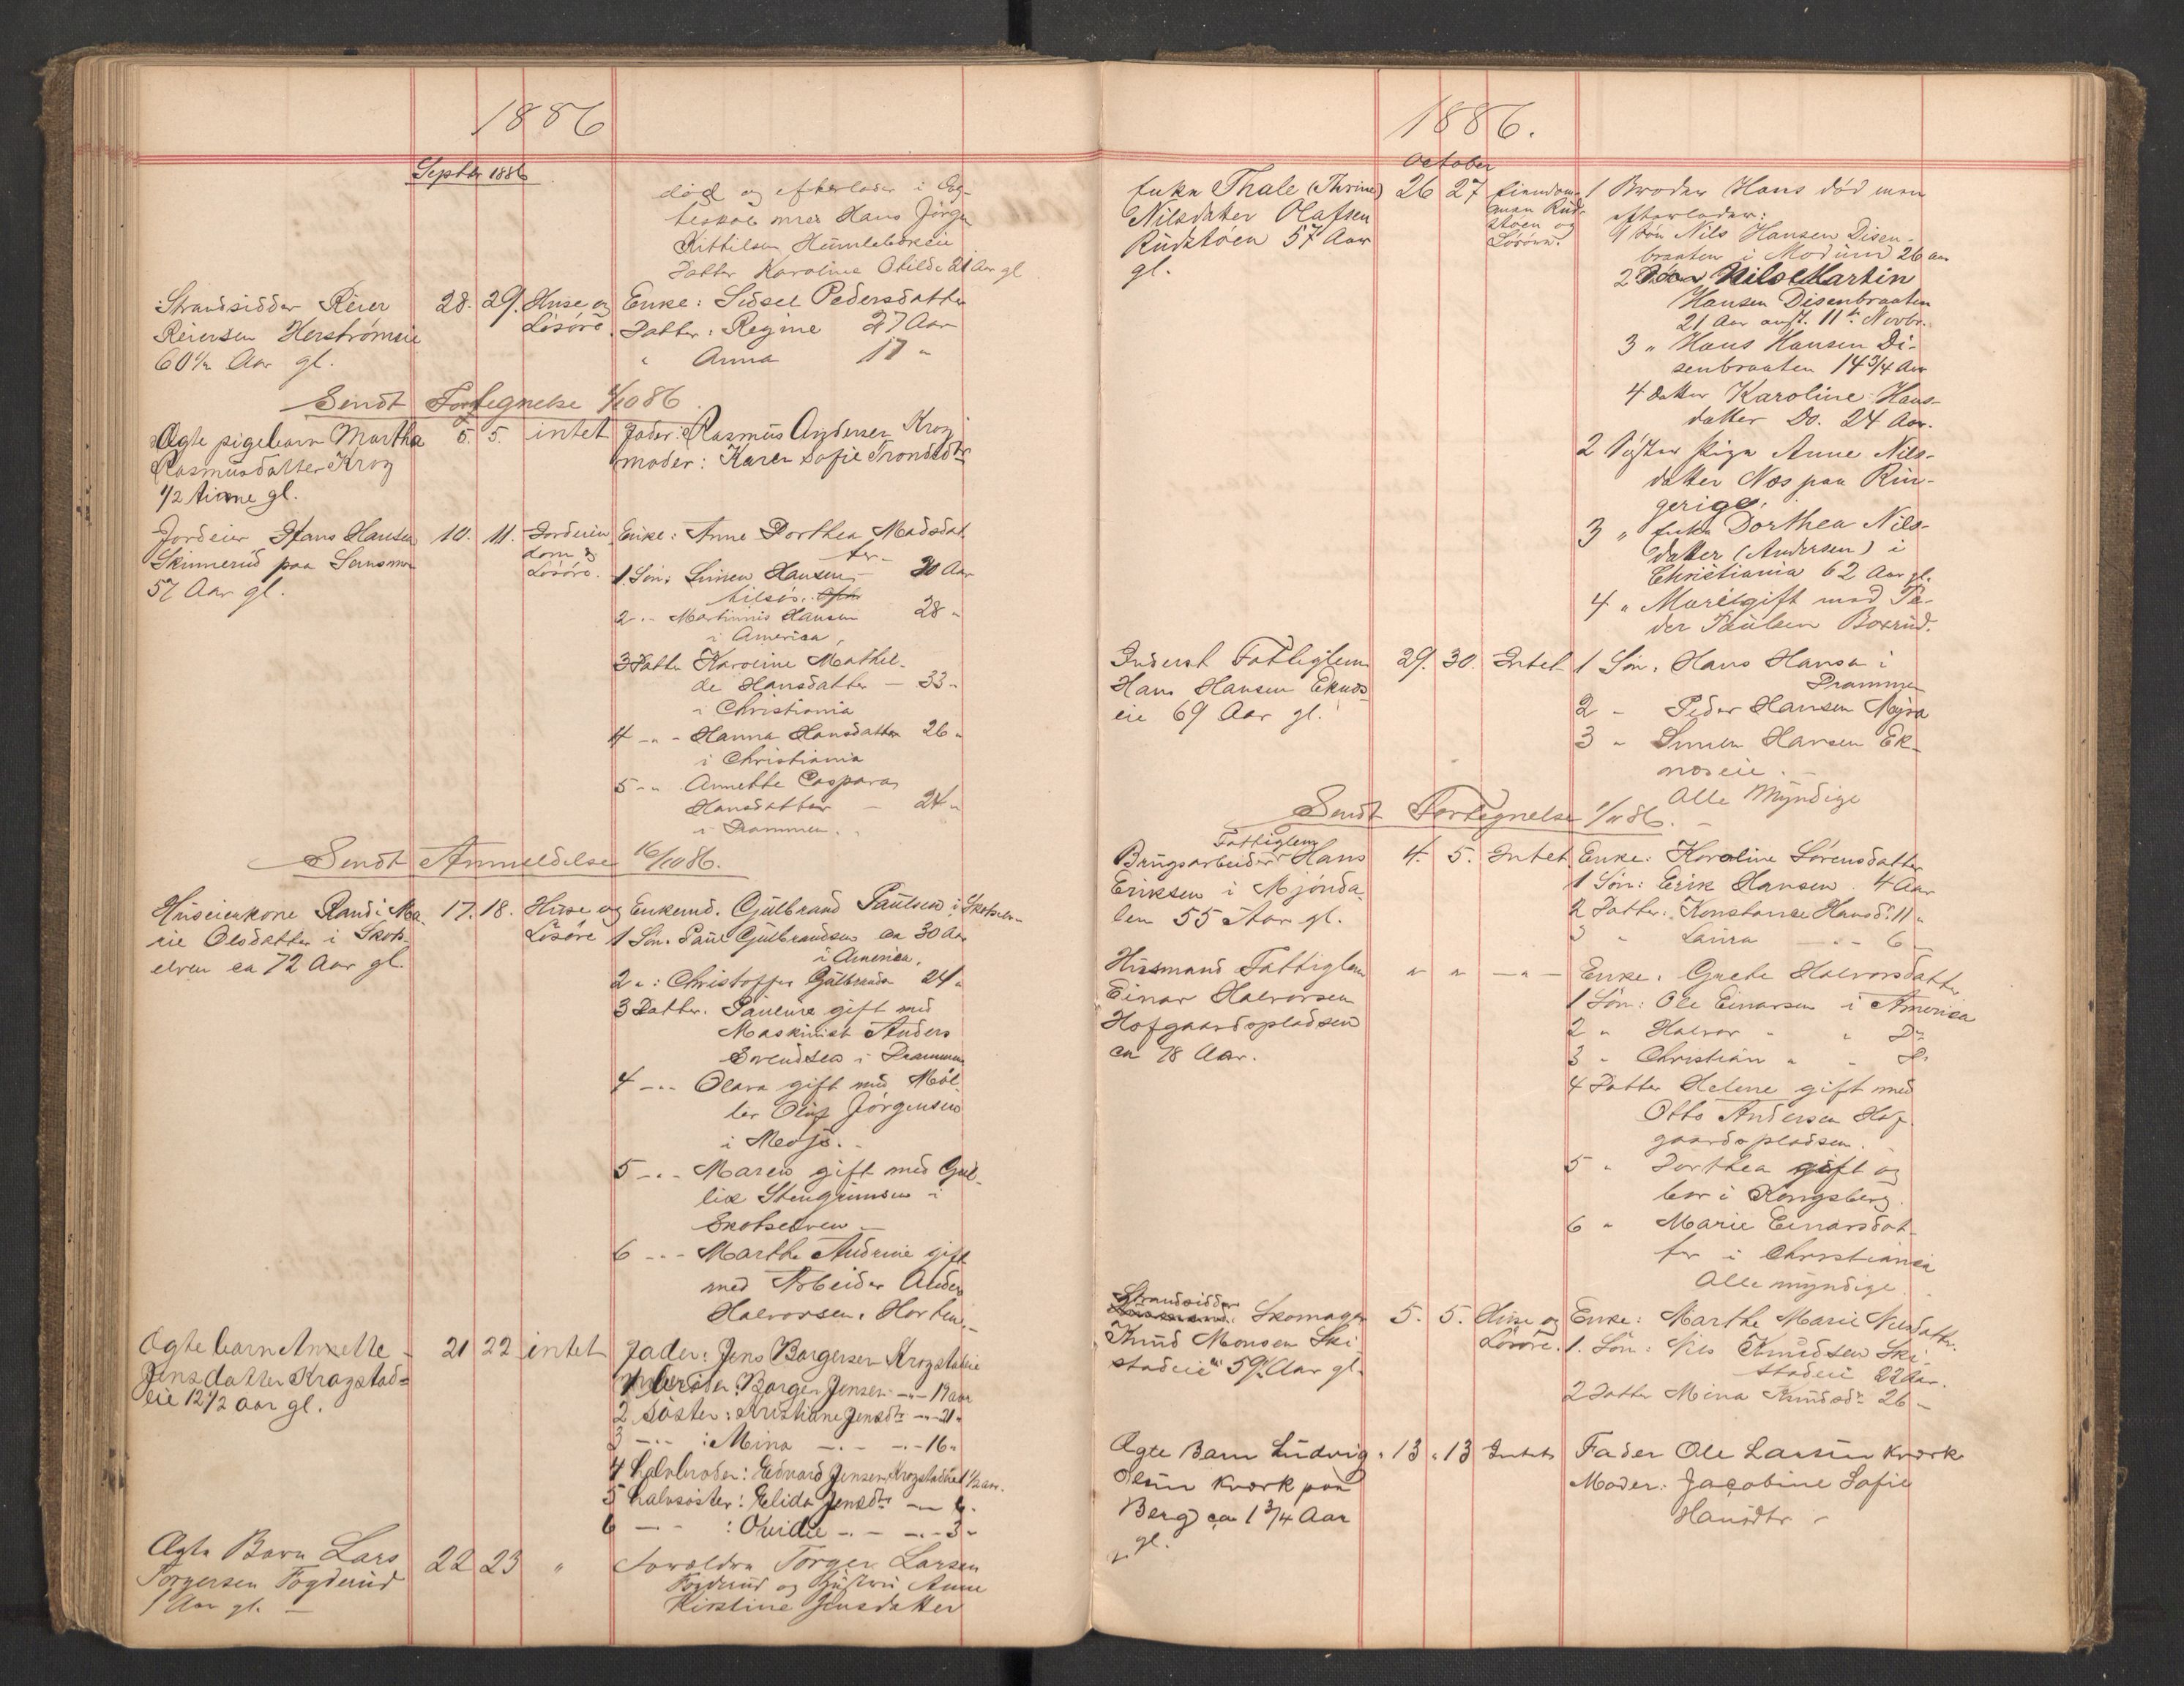 1886
Septbr 1886
død og efterlader i Eg-
teskab med Hans Jörgen
Kittilsen Humlebækeie
Datter Karoline Otilde 21 Aar gl
Strandsidder Reier 28. 29. Huse og Enke: Sidsel Pedersdatter
Reiersen Herströmseie Lösöre. Datter: Regine 27 Aar
60½ Aar gl. " Anna 17 "
Sendt Fortegnelse 4/10 86
Ægte pigebarn Martha 5. 5. intet Fader: Rasmus Andersen Krog
Rasmusdatter Krog moder: Karen Sofie Trondsdtr
½ time gl.
Jordeier Hans Hansen 10. 11. Jordeien- Enke: Anne Dorthea Madsdat
Skinnerud paa dom og ter-
57 Aar gl. Lösöre. 1. Sön: Simen Hansen - 30 Aar
2 " Martinius Hansen 28 "
i America
3 Datter Karoline Mathil-
de Hansdatter - 33 "
i Christiania
4 - " - Hanna Hansdatter 26 "
i Christiania
5 - " Annette Caspara
Hansdatter - 24 "
i Drammen.
Sendt Anmeldelse 16/10 86.
Huseierkone Randi Ma- 17. 18. Huse og Enkemd. Gulbrand Paulsen i Skotselv-
rie Olsdatter i Skots- Lösöre 1 Sön. Paul Gulbrandsen ca 30 Aar
elven ca 72 Aar gl. i America.
2 " : Christoffer Gulbrands 24 "
3 Datter. Pauline gift med
Maskinist Anders
Svendsen i Drammen
4 - " - Olava gift med Möl-
ler Oluf Jörgensen
i
5 - " - Maren gift med Gul-
lik Stengrimsen i
Skotselven -
6 - " - Marthe Andrine gift
med Arbeider Anders
Halvorsen, Horten. -
Ægtebarn Annette - 21 22 intet Fader: Jens Borgersen Krogstadeie
Jensdatter Krogstad= 1 broder: Borger Jensen -"- 19 aar
eie 12½ aar gl. 2 söster: Kristiane Jensdtr -"- 21 "
3 - " - : Mina - " - - " - 16 "
4 halvbroder: Edvard Jensen Krogstadeie 1½ aar.
5 halvsöster: Elida Jensdtr - " - 6 "
6 - " - : Ovidie - " - - " - 3 "
Ægte Barn Lars 22 23 " Forældre Torger Larsen
Torgersen Fogderud Fogderud og Hustru Anne
1 Aar gl. - Kirstine Jensdatter
1886.
October
Enke Thale (Thrine) 26 27 Eiendom- 1 Broder Hans död men
Nilsdatter Olafsen men Rud- efterlader:
Rudstöen 57 Aar stöen og 1 Sön Nils Hansen Disen-
gl. Lösöre. braaten i Modum 26 aar
2 Sön Nils Martin
Hansen Disenbraaten
21 Aar 11te Novbr.
3 " Hans Hansen Di-
senbraaten 14¾ Aar
4 datter Karoline Hans-
datter Do. 24 Aar.
2 Söster Pige Anne Nils-
datter Næs paa Rin-
gerige.
3 " Enke Dorthea Nils-
datter (Andersen) i
Christiania 62 Aar gl.
4 " Marit gift med Pe-
der Paulsen Boxrud.
Inderst Fattiglem 29. 30. Intet 1 Sön. Hans Hansen i
Hans Hansen Eknæs- Drammen
eie 69 Aar gl. 2 - Peder Hansen Myra
3 " Simen Hansen Ek-
næseie. -
Alle Myndige
Sendt Fortegnelse 1/11 86.
Fattiglem
Brugsarbeider Hans 4. 5. Intet Enke: Karoline Sörensdatter
Eriksen i Mjönda- 1 Sön: Erik Hansen. 4 Aar
len 55 Aar gl. 2 Datter: Konstanse Hansd. 11 "
3 " Laura - " - 6 -
Husmand Fattiglem " " - " - Enke. Grethe Halvorsdatter
Einar Halvorsen 1 Sön: Ole Einarsen i America
Hofgaardspladsen 2 " Halvor " " Do
ca 78 Aar. 3 " Christian " " Do
4 Datter Helene gift med
Otto Andersen Hof-
gaardspladsen.
5 " Dorthea gift og
bor i Kongsberg.
6 " Marie Einarsdat-
ter i Christiania
Alle myndige.
Strandsidder
Skomager 5. 5. Huse og Enke: Marthe Marie Nilsdatter.
Knud Monsen Ski- Lösöre. 1. Sön: Nils Knudsen Ski-
stadeie 59½ Aar gl. stadeie 22 Aar.
2 Datter Mina Knudsdr 26 -
Ægte Barn Ludvig " 13 " 13 Intet Fader Ole Larsen Kværk
Olsen Kværk paa Moder: Jacobine Sofie
Berg ca 1¾ Aar Hansdtr -
gl.